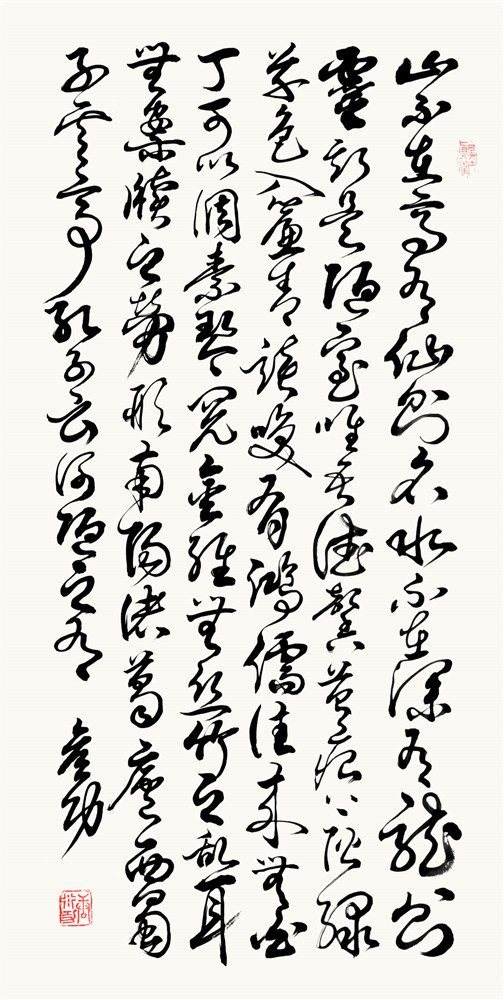 山不在高有仙則名水不在深有龍則
靈斯是陋室唯吾德馨苔痕上階綠
草色入簾青談笑有鴻儒往來無白
丁可以調素琴閱金經無絲竹之亂耳
無案牘之勞形南陽諸葛廬西蜀
子雲亭孔子云何陋之有